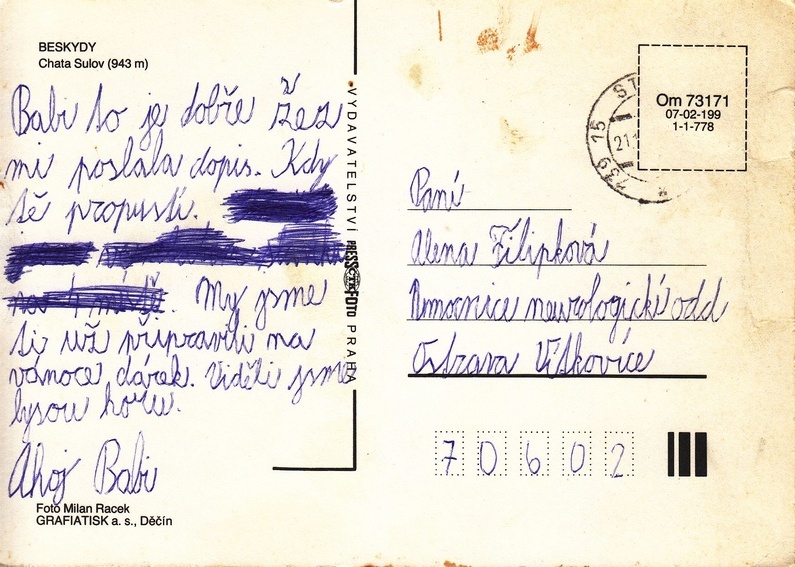 BESKYDY
Chata Sulov (943 m)
Babi to je dobře žes
mi poslala dopis. Kdy
tě propustí.
My jsme
ti už připravili na
vánoce dárek. Viděli jsme
lysou horu.
Ahoj Babi
Foto Milan Racek
GRAFIATISK a. s., Děčín
VYDAVATELSTVÍ PRESSFOTO PRAHA
Om 73171
07-02-199
1-1-778
739 15
Paní
Alena Filipková
Nemocnice neurologický odd
Ostrava Vítkovice
70602